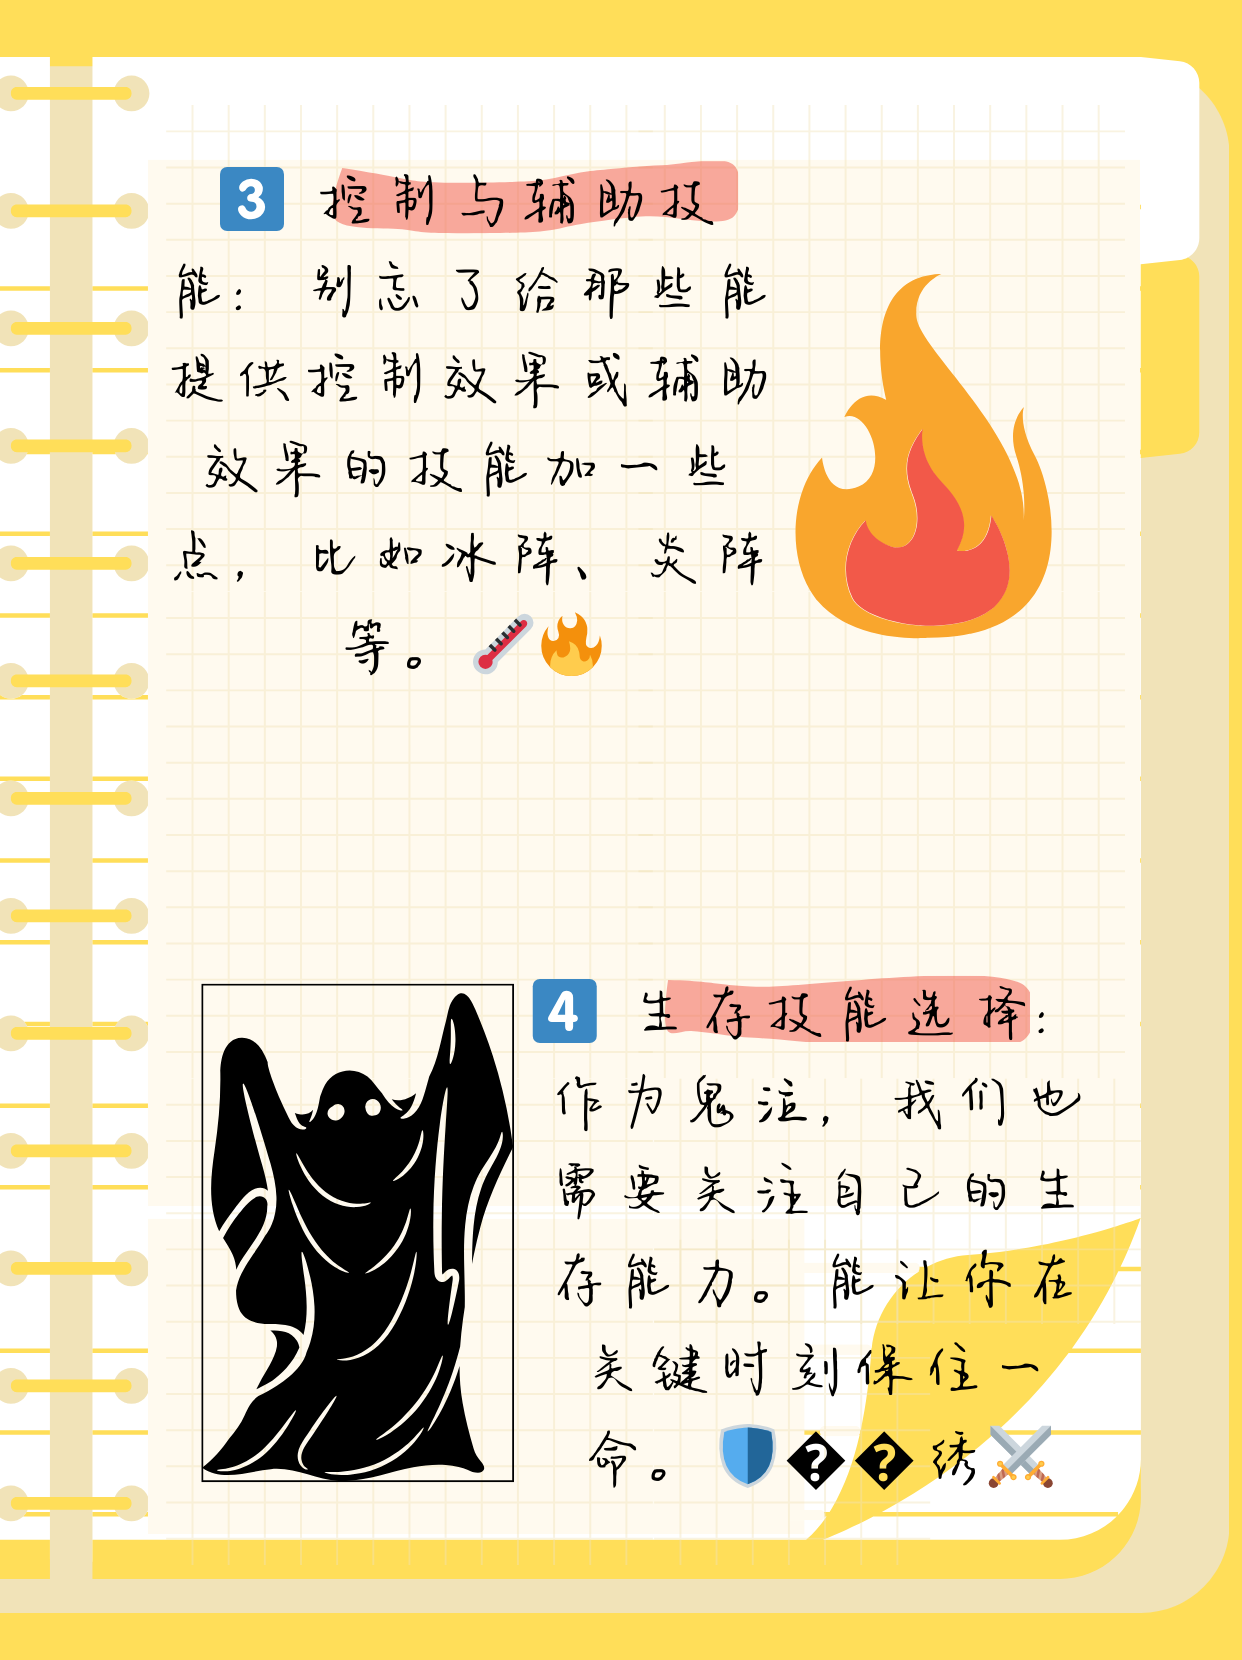 3️⃣ 控制与辅助技
能： 别忘了给那些能
提供控制效果或辅助
效果的技能加一些
点， 比如冰阵、 炎阵
等。🌡️🔥
4️⃣ 生存技能选择：
作为鬼泣， 我们也
需要关注自己的生
存能力。能让你在
关键时刻保住一
命。🛡️��绣⚔️